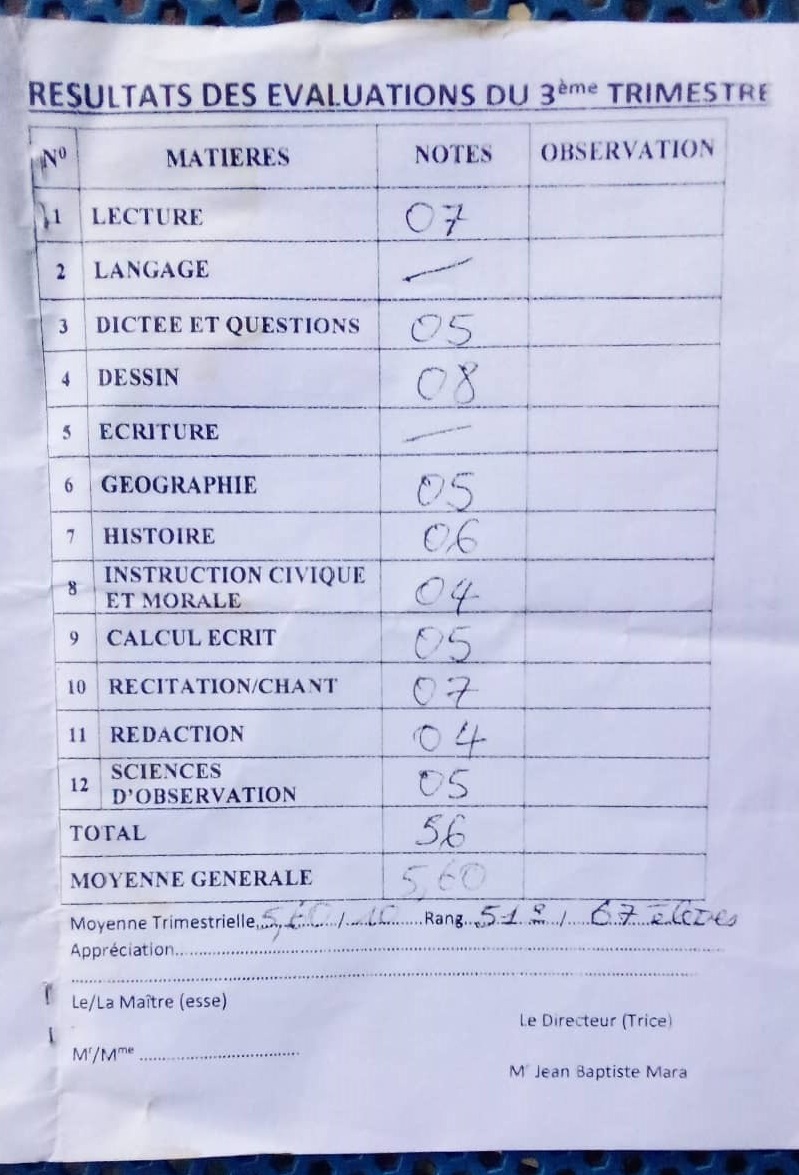 RESULTATS DES EVALUATIONS DU 3ème TRIMESTRE
N° MATIERES NOTES OBSERVATION
1 LECTURE 07
2 LANGAGE —
3 DICTEE ET QUESTIONS 05
4 DESSIN 08
5 ECRITURE —
6 GEOGRAPHIE 05
7 HISTOIRE 06
8 INSTRUCTION CIVIQUE
ET MORALE 04
9 CALCUL ECRIT 05
10 RECITATION/CHANT 07
11 REDACTION 04
12 SCIENCES
D'OBSERVATION 05
TOTAL 56
MOYENNE GENERALE 5,60
Moyenne Trimestrielle 5,60 / 10 Rang 51e / 67 élèves
Appréciation
Le/La Maître (esse)
Le Directeur (Trice)
Mr/Mme
Mr Jean Baptiste Mara